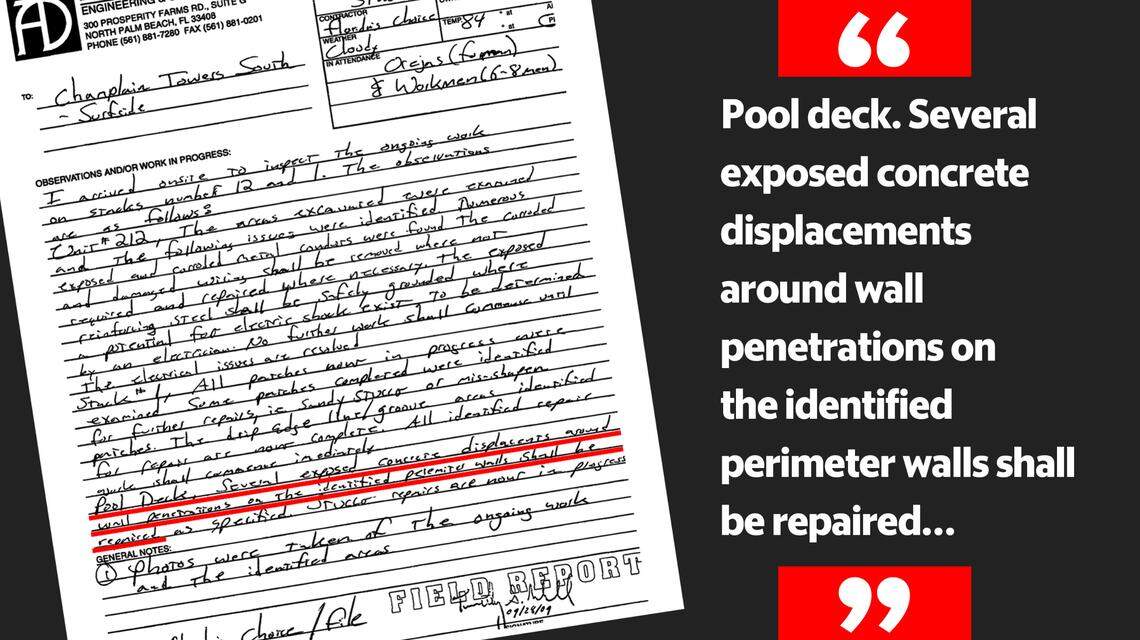 ENGINEERING &
300 PROSPERITY FARMS RD., SUITE G
NORTH PALM BEACH, FL 33408
PHONE (561) 881-7280 FAX (561) 881-0201
CONTRACTOR
Florida's Choice
WEATHER
Cloudy
TEMP 84 ° at
° at
IN ATTENDANCE
Orejas (foreman)
& Workmen (6-8 men)
TO: Champlain Towers South
~ Surfside
OBSERVATIONS AND/OR WORK IN PROGRESS:
I arrived onsite to inspect the ongoing work
on stacks number 12 and 1. The observations
are as follows:
Unit # 212, The areas excavated were examined
and the following issues were identified Numerous
exposed and corroded metal conduits were found The corroded
and damaged wiring shall be removed where not
required and repaired where necessary. The exposed
reinforcing steel shall be safely grounded where
a potential for electric shock exist, to be determined
by an electrician. No further work shall commence until
the electrical issues are resolved
Stack # 1, All patches now in progress were
examined Some patches completed were identified
for further repairs, ie Sandy Stucco or mis-shapen
patches. The drip edge line/groove areas identified
for repair are now complete. All identified repair
work shall commence imediately
Pool Deck, Several exposed concrete displacents around
wall penetrations on the identified peremite walls shall be
repaired as specified Stucco repairs are now in progress
GENERAL NOTES:
① Photos were taken of the ongoing works
and the identified areas
Choice / File
FIELD REPORT
09/28/09
SIGNATURE
“
Pool deck. Several
exposed concrete
displacements
around wall
penetrations on
the identified
perimeter walls shall
be repaired...
”